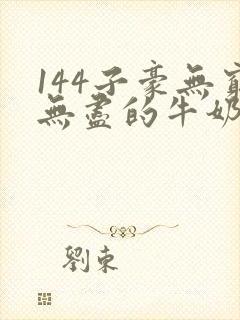 144子豪無窮
無盡的牛奶
劉東